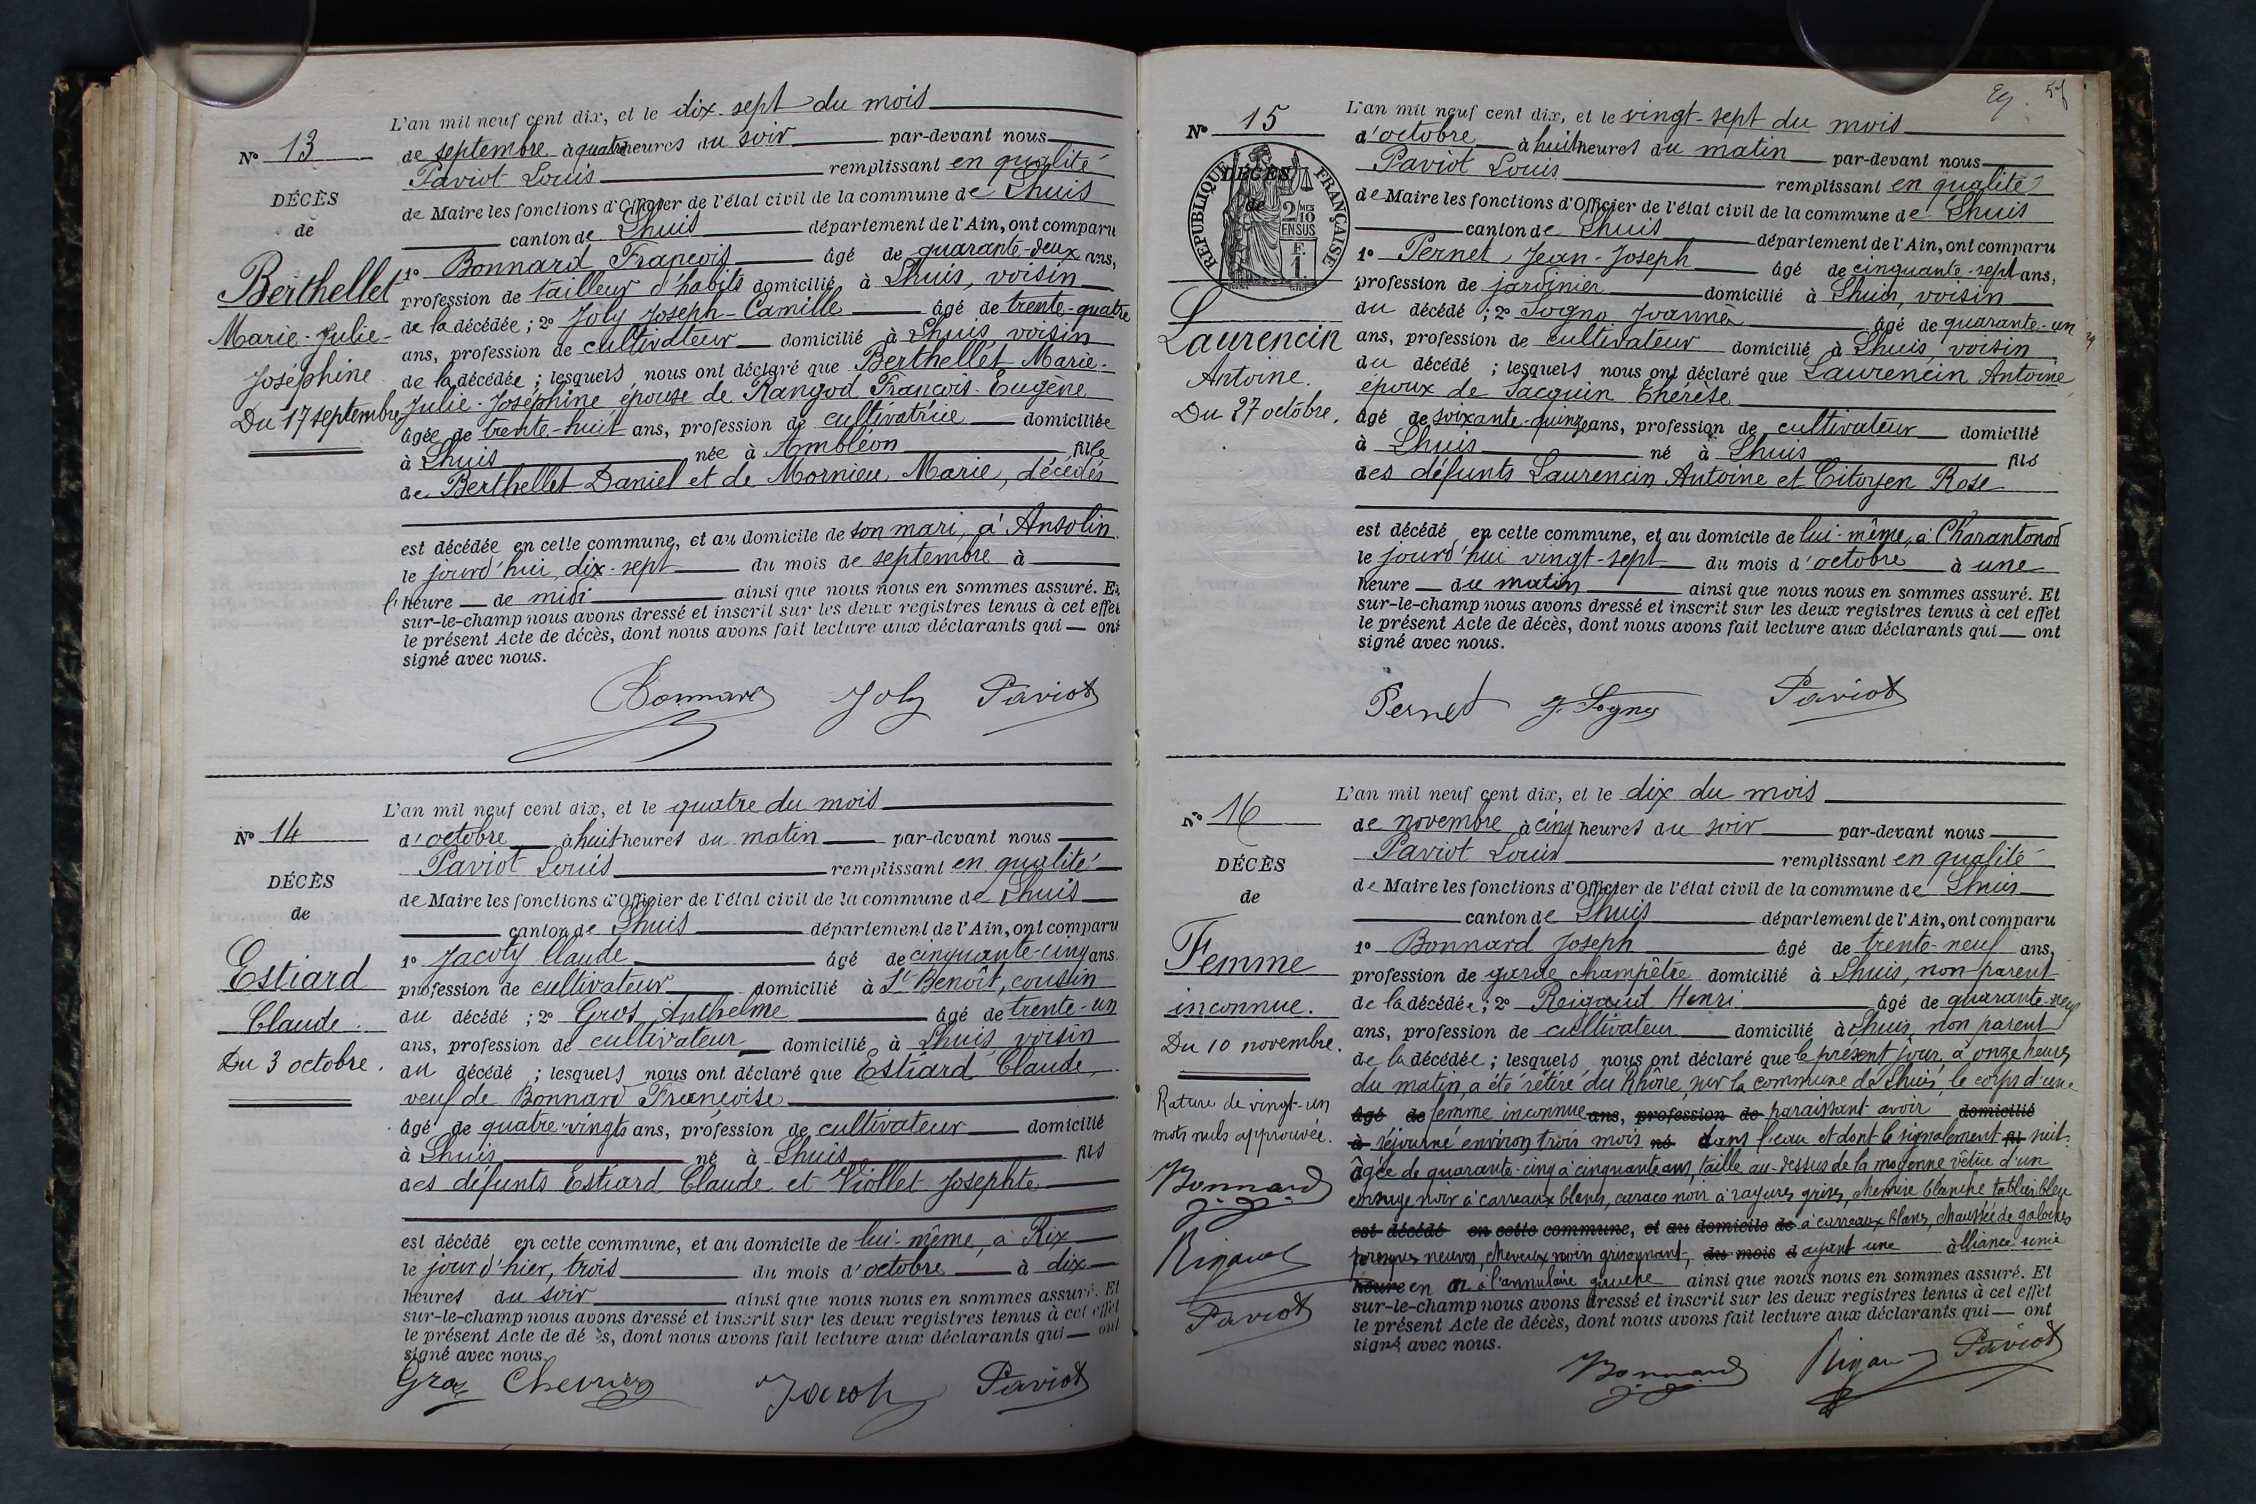 L'an mil neuf cent dix, et le dix-sept du mois
Nº 13
de septembre à quatre heures du soir par-devant nous
Paviot Louis remplissant en qualité
DÉCÈS
de Maire les fonctions d'Officier de l'état civil de la commune de Lhuis
de
canton de Lhuis département de l'Ain, ont comparu
1º Bonnard François âgé de quarante-deux ans,
Berthellet
profession de tailleur d'habits domicilié à Lhuis, voisin
Marie-Julie-
de la décédée ; 2º Joly Joseph-Camille âgé de trente-quatre
ans, profession de cultivateur domicilié à Lhuis, voisin
Joséphine
de la décédée ; lesquels nous ont déclaré que Berthellet Marie-
Du 17 septembre
Julie-Joséphine épouse de Rangod François-Eugène
âgée de trente-huit ans, profession de cultivatrice domiciliée
à Lhuis née à Ambléon fille
de Berthellet Daniel et de Mornieu Marie, décédés
est décédée en cette commune, et au domicile de son mari, à Ansolin
le jourd'hui, dix-sept du mois de septembre à
l'heure de midi ainsi que nous nous en sommes assuré. Et
sur-le-champ nous avons dressé et inscrit sur les deux registres tenus à cet effet
le présent Acte de décès, dont nous avons fait lecture aux déclarants qui ont
signé avec nous.
Bonnard Joly Paviot
L'an mil neuf cent dix, et le quatre du mois
Nº 14
d'octobre à huit heures du matin par-devant nous
Paviot Louis remplissant en qualité
DÉCÈS
de Maire les fonctions d'Officier de l'état civil de la commune de Lhuis
de
canton de Lhuis département de l'Ain, ont comparu
1º Jacoty Claude âgé de cinquante-cinq ans
Estiard
profession de cultivateur domicilié à St Benoît, cousin
Claude.
du décédé ; 2º Gros Anthelme âgé de trente-un
ans, profession de cultivateur domicilié à Lhuis, voisin
Du 3 octobre.
du décédé ; lesquels nous ont déclaré que Estiard Claude,
veuf de Bonnard Françoise
âgé de quatre-vingts ans, profession de cultivateur domicilié
à Lhuis né à Lhuis fils
des défunts Estiard Claude et Viollet Josephte
est décédé en cette commune, et au domicile de lui-même, à Rix
le jour d'hier, trois du mois d'octobre à dix
heures du soir ainsi que nous nous en sommes assuré. Et
sur-le-champ nous avons dressé et inscrit sur les deux registres tenus à cet effet
le présent Acte de décès, dont nous avons fait lecture aux déclarants qui ont
signé avec nous.
Gros Paviot
L'an mil neuf cent dix, et le vingt-sept du mois
Nº 15
d'octobre à huit heures du matin par-devant nous
Paviot Louis remplissant en qualité
RÉPUBLIQUE FRANÇAISE
2/10 MES EN SUS
F. 1.
DÉCÈS
de Maire les fonctions d'Officier de l'état civil de la commune de Lhuis
de
canton de Lhuis département de l'Ain, ont comparu
1º Pernet, Jean-Joseph âgé de cinquante-sept ans,
profession de jardinier domicilié à Lhuis, voisin
Laurencin
du décédé ; 2º Sogno Joanne âgé de quarante-un
ans, profession de cultivateur domicilié à Lhuis, voisin
Antoine.
du décédé ; lesquels nous ont déclaré que Laurencin Antoine
époux de Jacquin Thérèse
Du 27 octobre.
âgé de soixante-quinze ans, profession de cultivateur domicilié
à Lhuis né à Lhuis fils
des défunts Laurencin Antoine et Citoyen Rose
est décédé en cette commune, et au domicile de lui-même, à Charantonod
le jourd'hui vingt-sept du mois d'octobre à une
heure du matin ainsi que nous nous en sommes assuré. Et
sur-le-champ nous avons dressé et inscrit sur les deux registres tenus à cet effet
le présent Acte de décès, dont nous avons fait lecture aux déclarants qui ont
signé avec nous.
Pernet J. Sogno Paviot
L'an mil neuf cent dix, et le dix du mois
Nº 16
de novembre à cinq heures du soir par-devant nous
Paviot Louis remplissant en qualité
DÉCÈS
de Maire les fonctions d'Officier de l'état civil de la commune de Lhuis
de
canton de Lhuis département de l'Ain, ont comparu
1º Bonnard Joseph âgé de trente-neuf ans,
Femme
profession de garde champêtre domicilié à Lhuis, non parent
inconnue.
de la décédée ; 2º Rigaud Henri âgé de quarante-neuf
ans, profession de cultivateur domicilié à Lhuis, non parent
Du 10 novembre.
de la décédée ; lesquels nous ont déclaré que le présent jour, à onze heures
du matin, a été retiré du Rhône, sur la commune de Lhuis, le corps d'une
âgé de femme inconnue ans, profession de paraissant avoir domicilié
à séjourné environ trois mois né dans l'eau et dont le signalement fil suit:
âgée de quarante-cinq à cinquante ans, taille au-dessus de la moyenne vêtue d'un
corsage noir à carreaux blancs, caraco noir à rayures grises, chemise blanche tablier bleu
est décédé en cette commune, et au domicile de à carreaux blancs, chaussée de galoches
presque neuves, cheveux noirs grisonnant, du mois d ayant une alliance unie
heure en or à l'annulaire gauche ainsi que nous nous en sommes assuré. Et
sur-le-champ nous avons dressé et inscrit sur les deux registres tenus à cet effet
le présent Acte de décès, dont nous avons fait lecture aux déclarants qui ont
signé avec nous.
Rature de vingt-un
mots nuls approuvée.
Bonnard
Rigaud
Paviot
Bonnard Rigaud Paviot